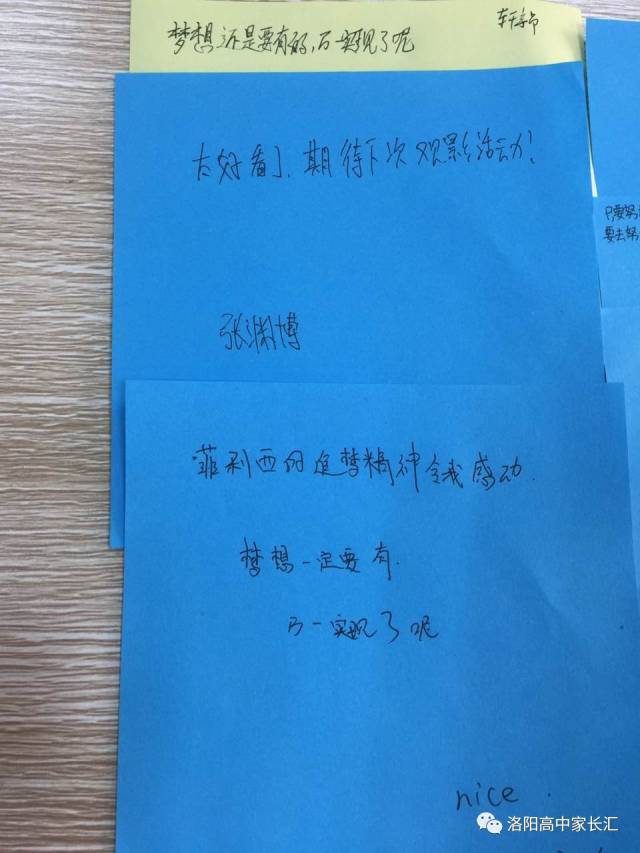 梦想还是要有的,万一实现了呢
太好看了、期待下次观影活动!
只要努
要去努
张渊博
菲利西的追梦精神令我感动.
梦想一定要有.
万一实现了呢
nice.
洛阳高中家长汇